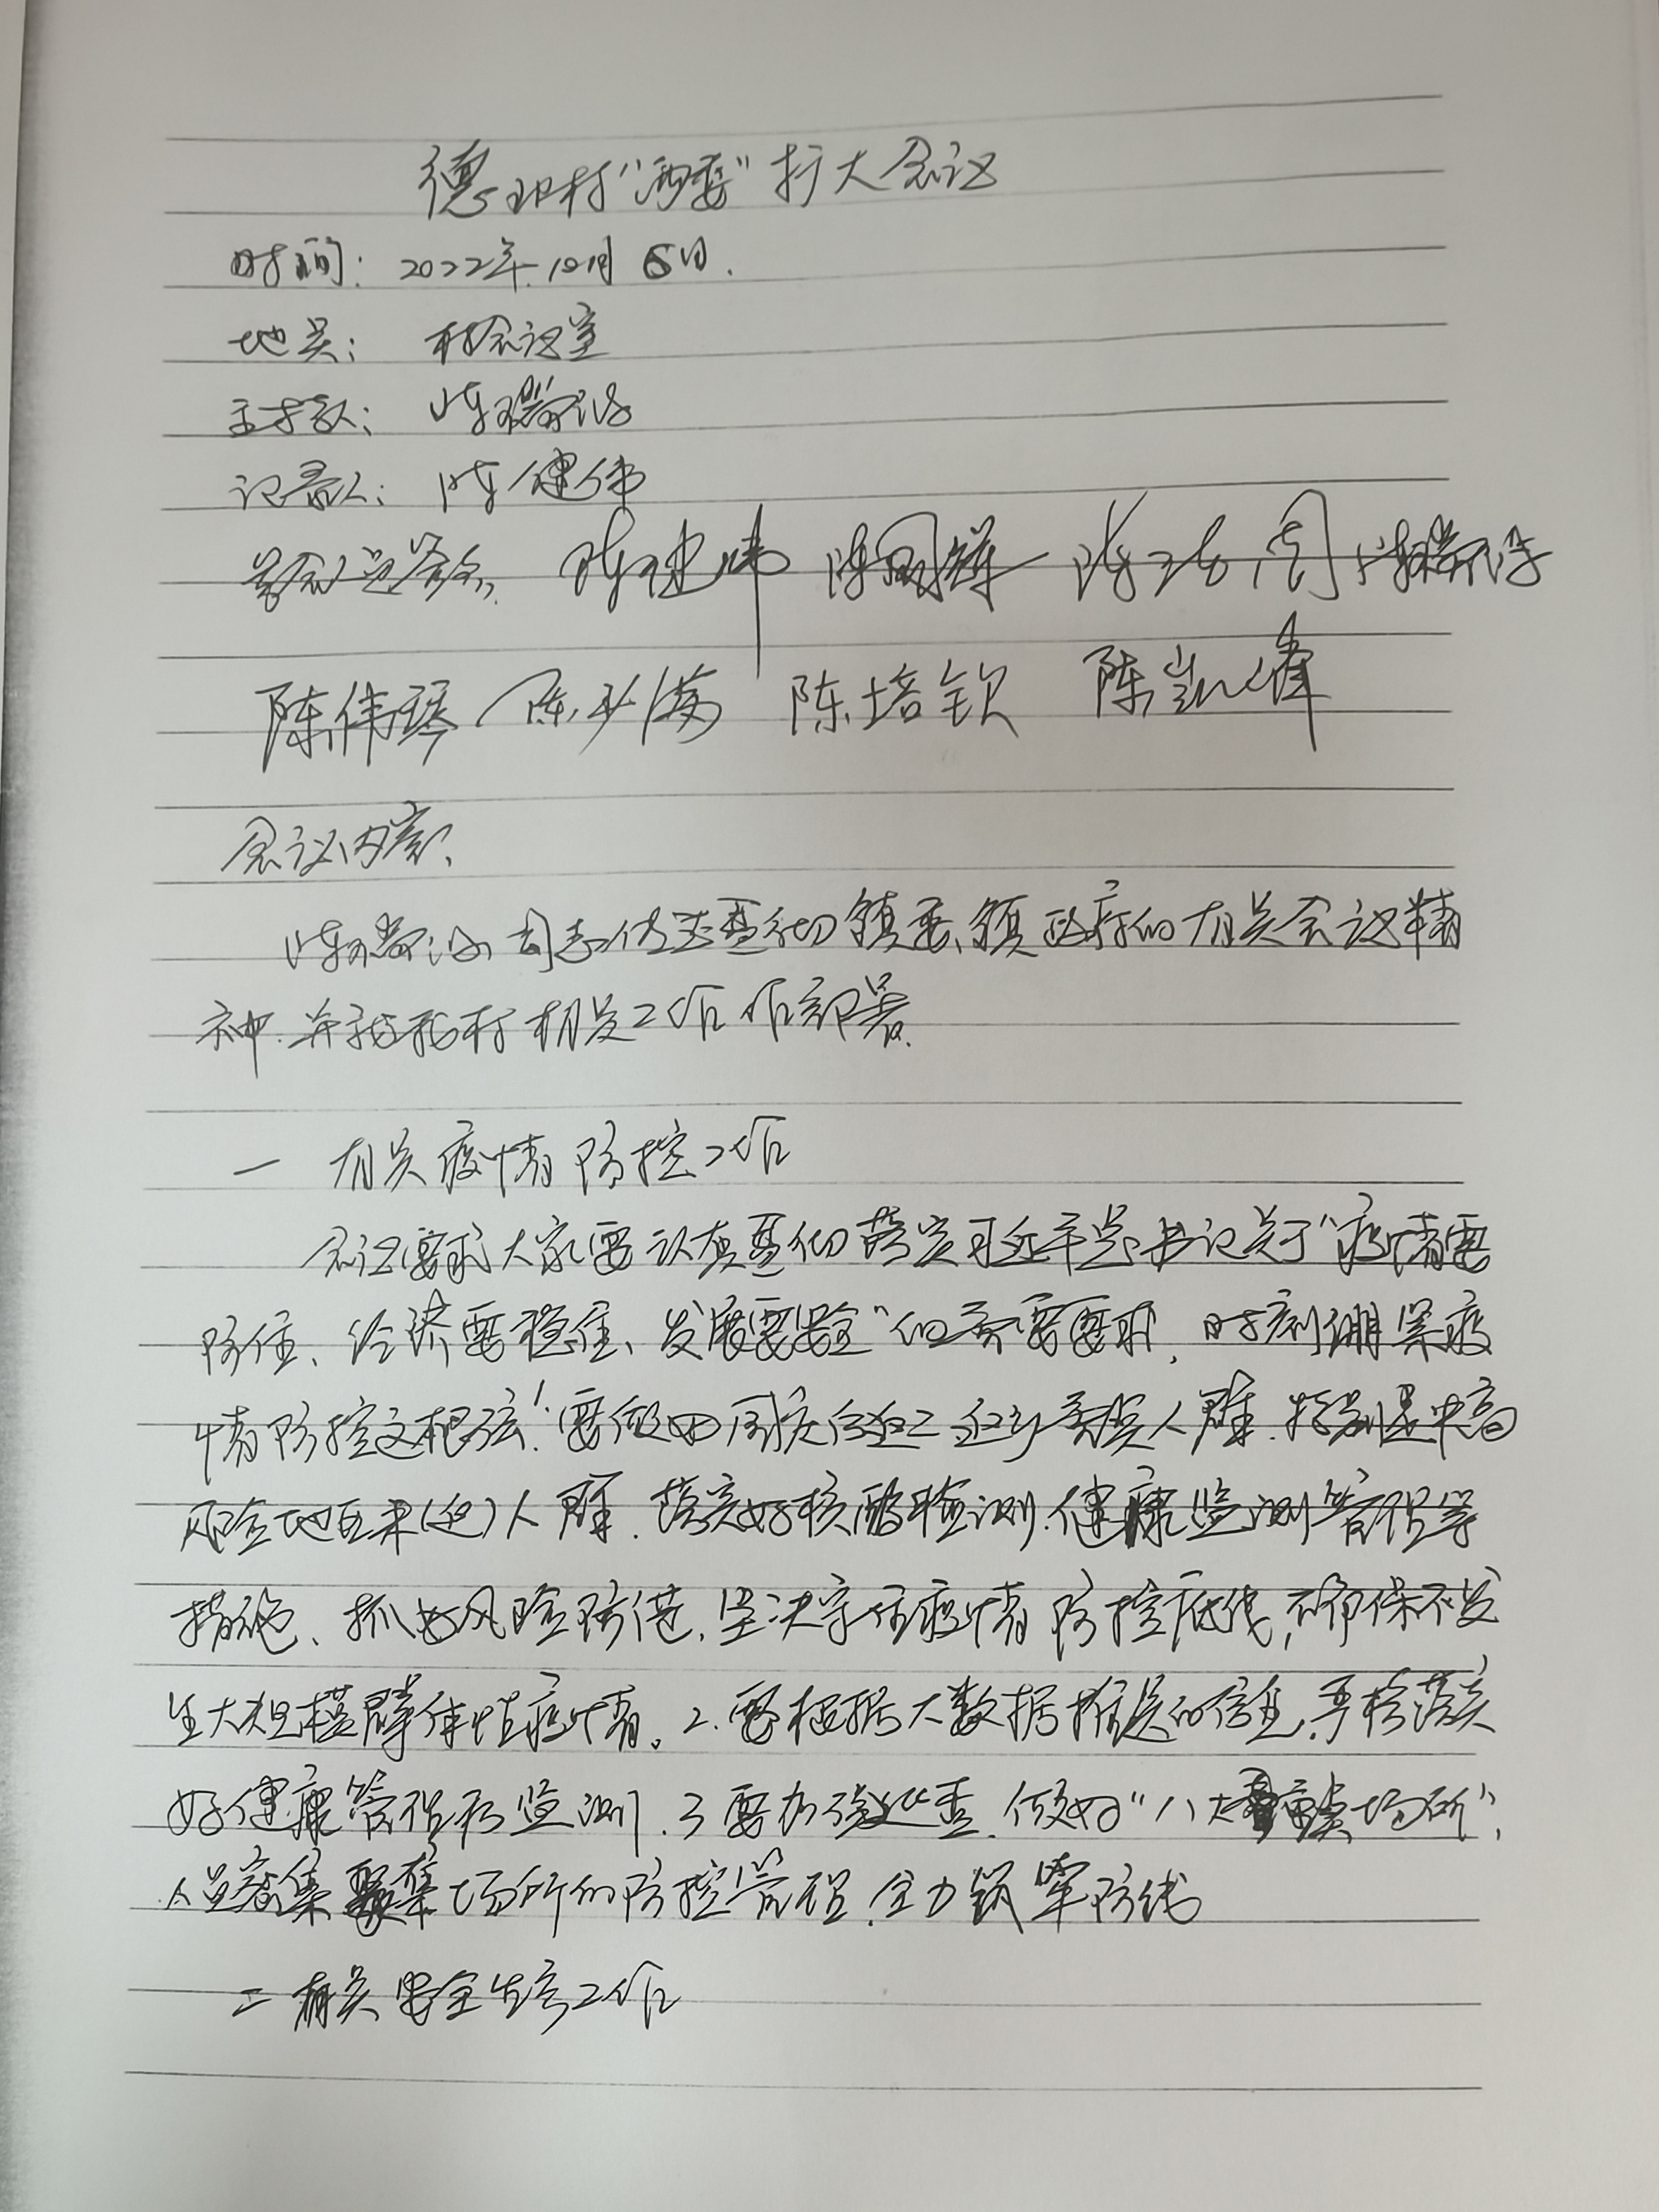 德 村"两委"扩大会议
时间: 2022年10月6日.
地点: 村会议室
主持人: 陈瑞浩
记录人: 陈健伟
参会人员签名: 陈建 陈 辉 陈 陈瑞浩
陈伟琴 陈少满 陈培钦 陈凯锋
会议内容.
陈瑞浩同志传达贯彻镇委、镇政府的有关会议精
神.并就我村相关工作作部署.
一 有关疫情防控工作
会议要求大家要认真贯彻落实习近平总书记关于"疫情要
防住、经济要稳住、发展要安全"的重要要求,时刻绷紧疫
情防控这根弦! 要做 国庆 返 重点人群.特别是中高
风险地区来(返)人群.落实好核酸检测.健康监测管理等
措施、抓好风险防范.坚决守住疫情防控底线,确保不发
生大规模群体性疫情。2.要根据大数据推送的信息,严格落实
好健康管理和监测.3要加强 查.做好"八大重点场所",
人员密集 场所的防控管理.全力筑牢防线
二 有关安全生产工作